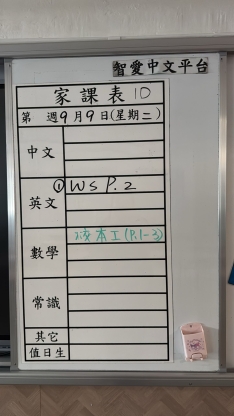 智愛中文平台
家課表 1D
第 週9月9日(星期二)
中文
英文 ① WS P.2
數學 校本工(P.1-3)
常識
其它
值日生